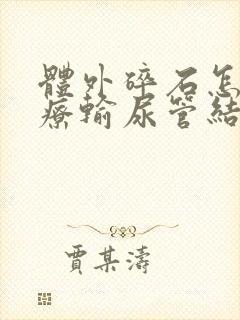 體外碎石怎
療輸尿管結
賈某濤